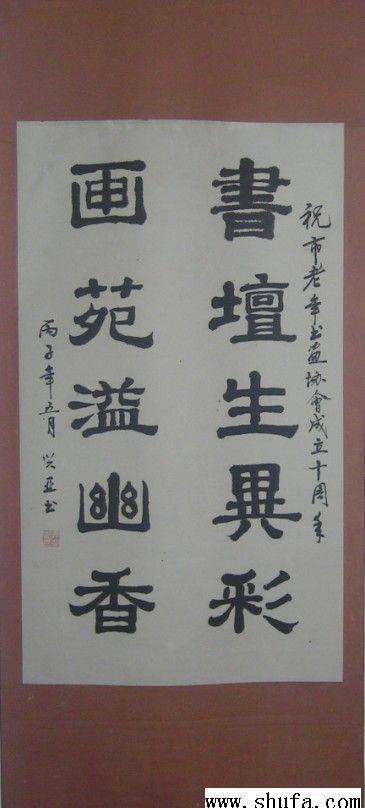 祝市老年书画协會成立十周年
書壇生異彩
画苑溢幽香
丙子年五月 兴亚书
www.shufa.com